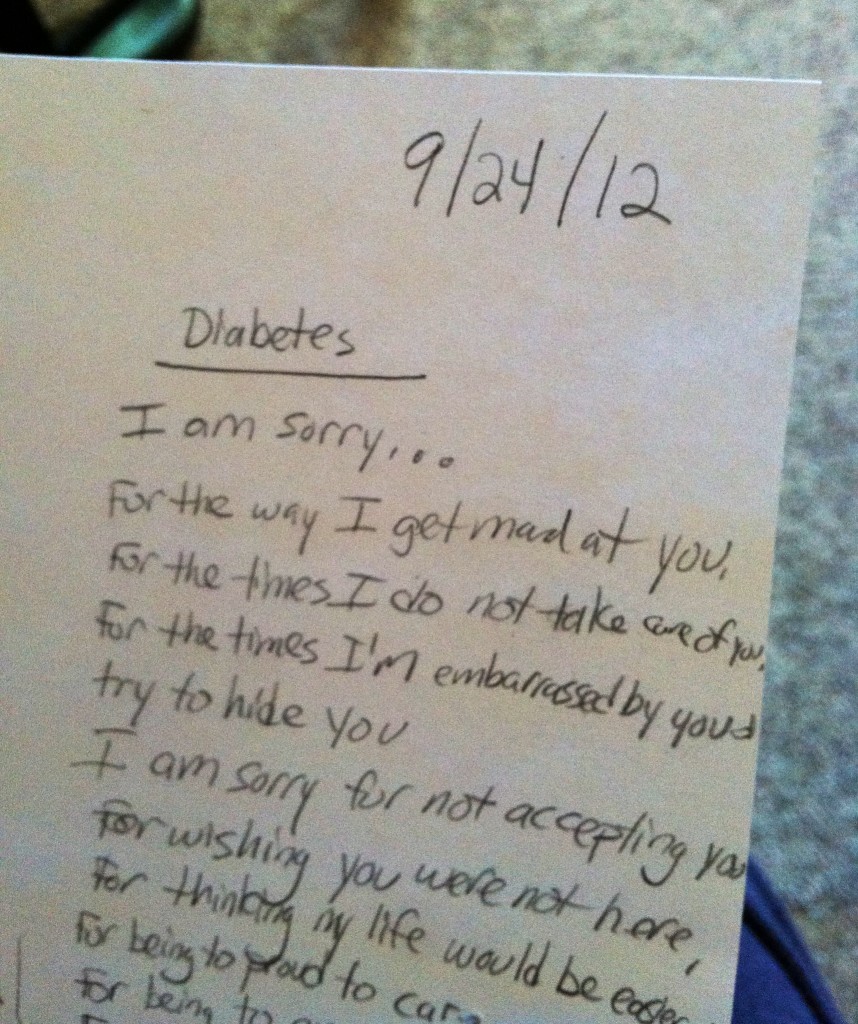 9/24/12
Diabetes
I am sorry...
For the way I get mad at you,
For the times I do not take care of you,
For the times I'm embarrassed by you &
try to hide you
I am sorry for not accepting you
For wishing you were not here,
For thinking my life would be easier
For being to proud to care
For being to